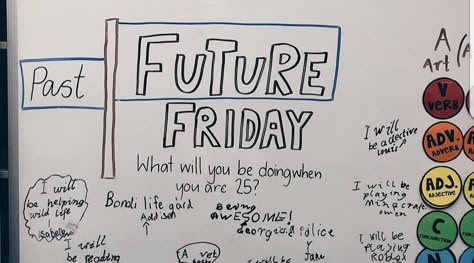 Past
FUTURE
FRIDAY
What will you be doing when
you are 25?
I will
be helping
wild life
Isabelen
Bondi life gard
Addison
Being
AWESOME!
Georgia
Police
Jane
I will
be reading
A vet
I will be
I will
be adective
louis
I will be
playing
Minecraft
owen
I will be
playing
Roblox
A
Art
V
VERB
ADV.
ADVERB
ADJ.
ADJECTIVE
C
CONJUNCTION